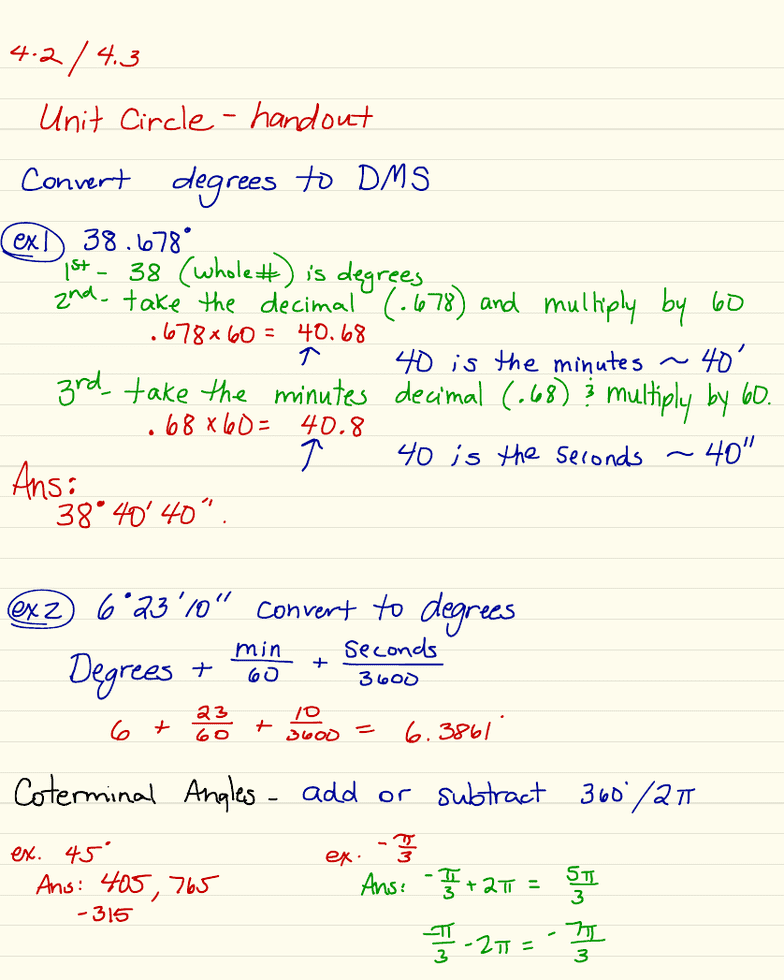 4.2 / 4.3
Unit Circle - handout
Convert degrees to DMS
ex1 38.678°
1st - 38 (whole#) is degrees
2nd - take the decimal (.678) and multiply by 60
.678 × 60 = 40.68
↑ 40 is the minutes ~ 40'
3rd - take the minutes decimal (.68) & multiply by 60.
.68 × 60 = 40.8
↑ 40 is the seconds ~ 40"
Ans:
38° 40' 40".
ex2 6°23'10" convert to degrees
Degrees + min/60 + seconds/3600
6 + 23/60 + 10/3600 = 6.3861°
Coterminal Angles - add or subtract 360°/2π
ex. 45°
Ans: 405, 765
-315
ex. -π/3
Ans: -π/3 + 2π = 5π/3
-π/3 - 2π = -7π/3